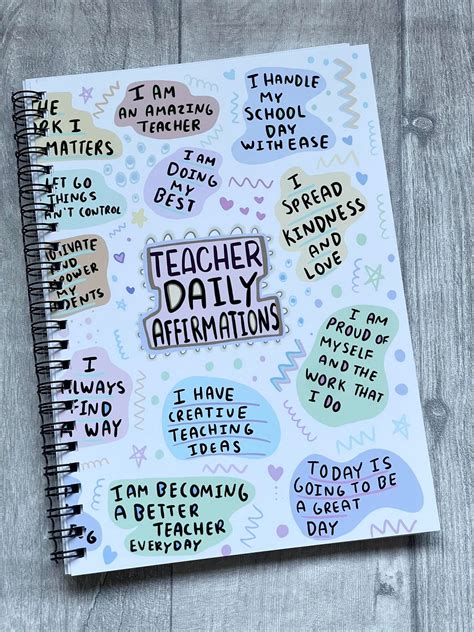 HE
RK I
MATTERS
I AM
AN AMAZING
TEACHER
I HANDLE
MY
SCHOOL
DAY
WITH EASE
ET GO
THINGS
AN'T CONTROL
I AM
DOING
MY
BEST
I
SPREAD
KINDNESS
AND
LOVE
OTIVATE
AND
POWER
MY
DENTS
TEACHER
DAILY
AFFIRMATIONS
I AM
PROUD OF
MYSELF
AND THE
WORK THAT
I DO
I
ALWAYS
FIND
A WAY
I HAVE
CREATIVE
TEACHING
IDEAS
TODAY IS
GOING TO BE
A GREAT
DAY
I AM BECOMING
A BETTER
TEACHER
EVERYDAY